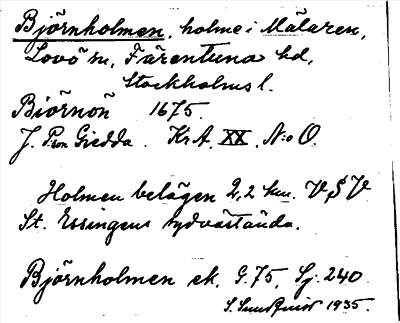 Björnholmen, holme i Mälaren,
Lovö sn, Färentuna hd,
Stockholms l.
Biörnöñ 1675.
J. Pson Giedda. KrA. XX. N:o O.
Holmen belägen 2,2 km. VSV
St. Essingens sydvästända.
Björnholmen ek. G. 75, Sj. 240
S. Sundquist 1935.